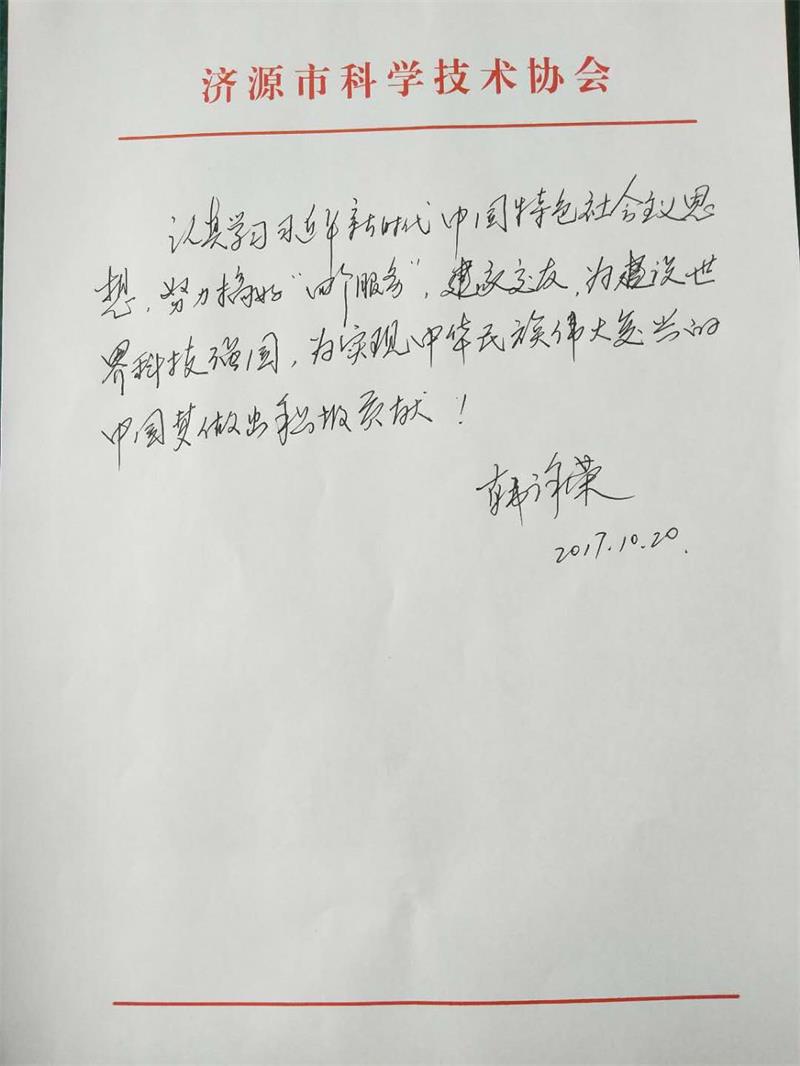 济源市科学技术协会
认真学习习近平新时代中国特色社会主义思
想，努力搞好“四个服务”，建家交友，为建设世
界科技强国，为实现中华民族伟大复兴的
中国梦做出积极贡献！
韩荣
2017.10.20.